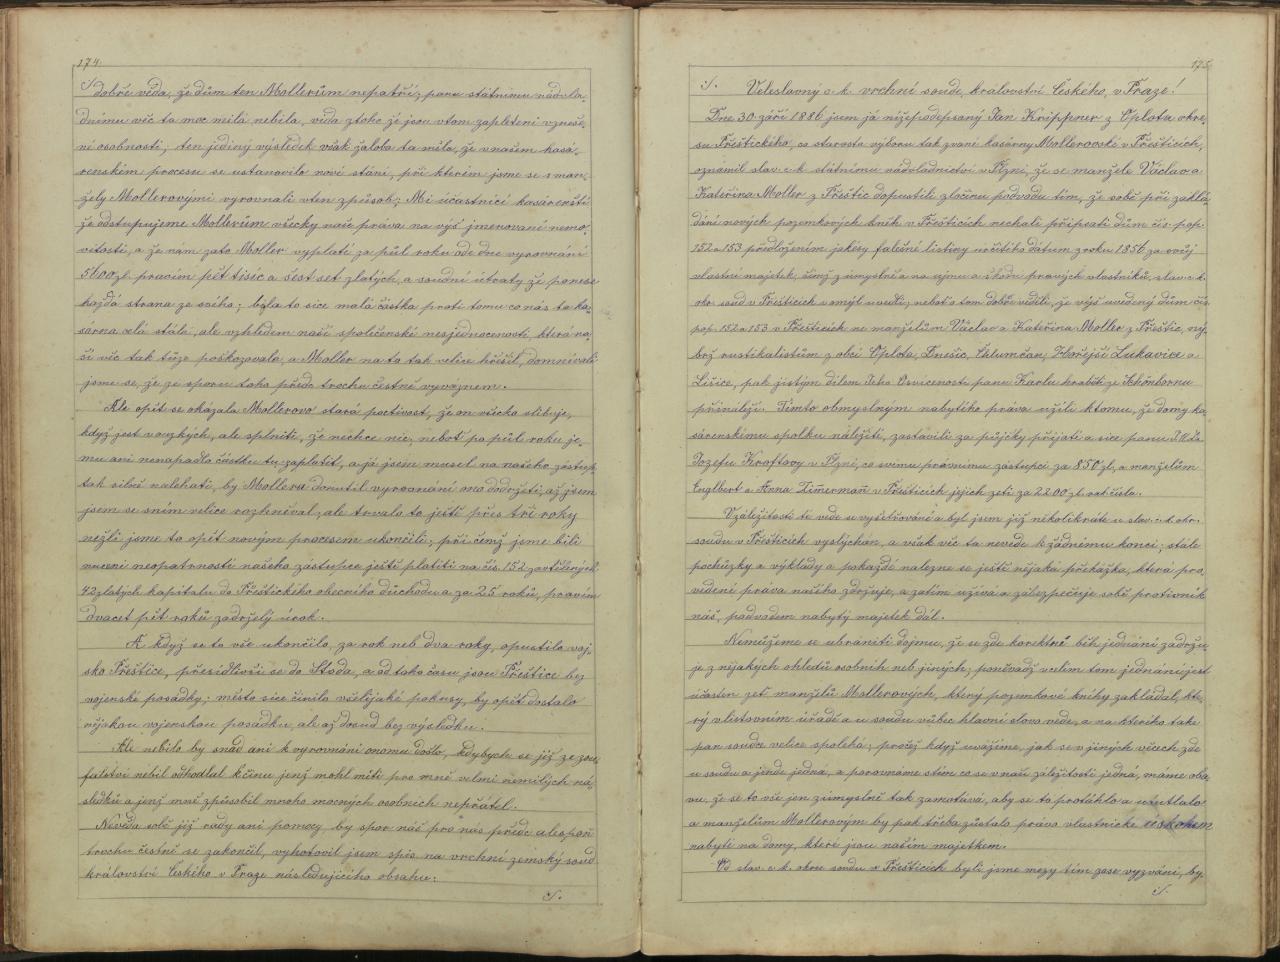 174.
./. dobře věda, že dům ten Mollerům nepatří; panu státnímu nádvla-
dnímu věc ta moc milá nebila, vida ztoho že jsou vtom zapleteni vzneše-
né osobnosti; ten jediný výsledek však žaloba ta měla, že vnašem kasá-
renském procesu se ustanovilo nové stání, při kterém jsme se s man-
žely Mollerovými vyrovnali vten způsob: Mi účastníci kasárenští
že odstupujeme Mollerům všecky naše práva na výš jmenované nemo-
vitosti, a že nám zato Moller vyplatí za půl roku ode dne vyrovnání
5600 zl. pravím pět tisíc a šest set zlatých, a soudní útraty že ponese
každá strana ze svého; byla to sice malá částka proti tomu co nás ta ka-
sárna celá stála, ale vzhledem naší společenské nesjednocenosti, která na-
ši věc tak těžce poškozovala, a Moller na to tak velice hřešil, domnívali
jsme se, že ze sporu toho přede trochu čestně vyváznem.
Ale opět se okázala Mollerova stará poctivost, že on všecko slibuje,
když jest v ouzkých, ale splniti, že nechce nic, neboť po půl roku je-
mu ani nenapadlo částku tu zaplatit, a já jsem musel na našeho zástup.
tak silně nalehati, by Mollera donutil vyrovnání ono dodržeti, až jsem
jsem se sním velice rozhněval, ale trvalo to ještě přes tři roky
nežli jsme to opět novým procesem ukončili; při čemž jsme bili
nuceni neopatrností našeho zástupce ještě platiti na čís. 152 zavtělených
42 zlatých kapitalu do Přeštického obecního důchodu a za 25 roků, pravím
dvacet pět roků zadrželý úrok.
A když se to vše ukončilo, za rok neb dva roky, opustilo voj-
sko Přeštice, přesídlivši se do Stoda, a od toho času jsou Přeštice bez
vojenské posádky; město sice činilo všelijaké pokusy, by opět dostalo
nějakou vojenskou posádku, ale až dosud bez výsledku.
Ale nebilo by snad ani k vyrovnání onomu došlo, kdybych se již ze zou-
falství nebil odhodlal k činu jenž mohl míti pro mně velmi nemilých ná-
sledků a jenž mně způsobil mnoho mocných osobních nepřátel.
Nevěda sobě již rady ani pomoci, by spor náš pro nás přede alespoň
trochu čestně se zakončil, vyhotovil jsem spis na vrchní zemský soud
království Českého v Praze následujícího obsahu:
./.
175.
./. Veleslavný c. k. vrchní soude, království Českého, v Praze!
Dne 30 září 1886 jsem já nížepodepsaný Jan Krippner z Oplota okre-
su Přeštického, co starosta výboru tak zvané kasárny Mollerovské v Přešticích,
oznámil slav. c. k. státnímu nádvladnictví v Plzni, že se manželé Václav a
Kateřina Moller z Přeštic dopustili zločinu podvodu tím, že sobě při zaklá-
dání nových pozemkových knih v Přešticích nechali připsati dům čís. pop.
152 a 153 předložením jakési falešné listiny určitého dátum z roku 1856 za svůj
vlastní majetek, čímž z úmyslně na ujmu a škodu pravých vlastníků, slav. c. k.
okr. soud v Přešticích v omýl uvedli; neboť o tom dobře věděli, že výš uvedený dům čís.
pop. 152 a 153 v Přešticích ne manželům Václav a Kateřina Moller z Přeštic, ný-
brž rustikalistům z obcí Oplota, Dnešic, Chlumčan, Hořejší Lukavice a
Lišice, pak jistým dílem Jeho Osvícenosti panu Karlu hraběti ze Schönbornu
přináleží. Tímto obmyslným nabytího práva užili ktomu, že domy ka-
sárenskému spolku náležítí, zastavili za půjčky přijatí a sice panu JUDr.
Jozefu Kroftovy v Plzni, co svímu právnímu zástupci za 850 zl, a manželům
Englbert a Anna Zimermañ v Přešticích jejich zeti za 2200 zl. rak. čísla.
Vzáležitosti té vede se vyšetřování a byl jsem již několikráte u slav. c. k. okr.
soudu v Přešticích vyslýchán, a však věc ta nevede k žádnému konci; stále
pochůzky a výklady a pokaždé nalezne se ještě nějaká překážka, která pro-
vedení práva našeho zdržuje, a zatím užívá a zabezpečuje sobě protivník
náš, podvodem nabytý majetek dál.
Nemůžeme se ubrániti dojmu, že se zde korektně běh jednání zadržu-
je z nějakých ohledů osobních neb jiných, poněvadž ucelím tom jednání jest
účasten zeť manželů Mollerových, který pozemkové knihy zakládal, kte-
rý vlastovním úřadě a u soudu vůbec hlavní slovo vede, a na kterého také
pan soudce velice spoléhá; pročež když uvážíme, jak se v jiných věcech zde
u soudu a jinde jedná, a porovnáme stím co se vnaší záležitosti jedná, máme oba-
vu, že se to vše jen zúmyslně tak zamotává, aby se to protáhlo a
a manželům Mollerovým by pak třeba zůstalo právo vlastnické
nabyti na domy, které jsou naším majetkem.
Od slav. c. k. okre. soudu v Přešticích byli jsme mezy tím zase vyzváni, by-
./.